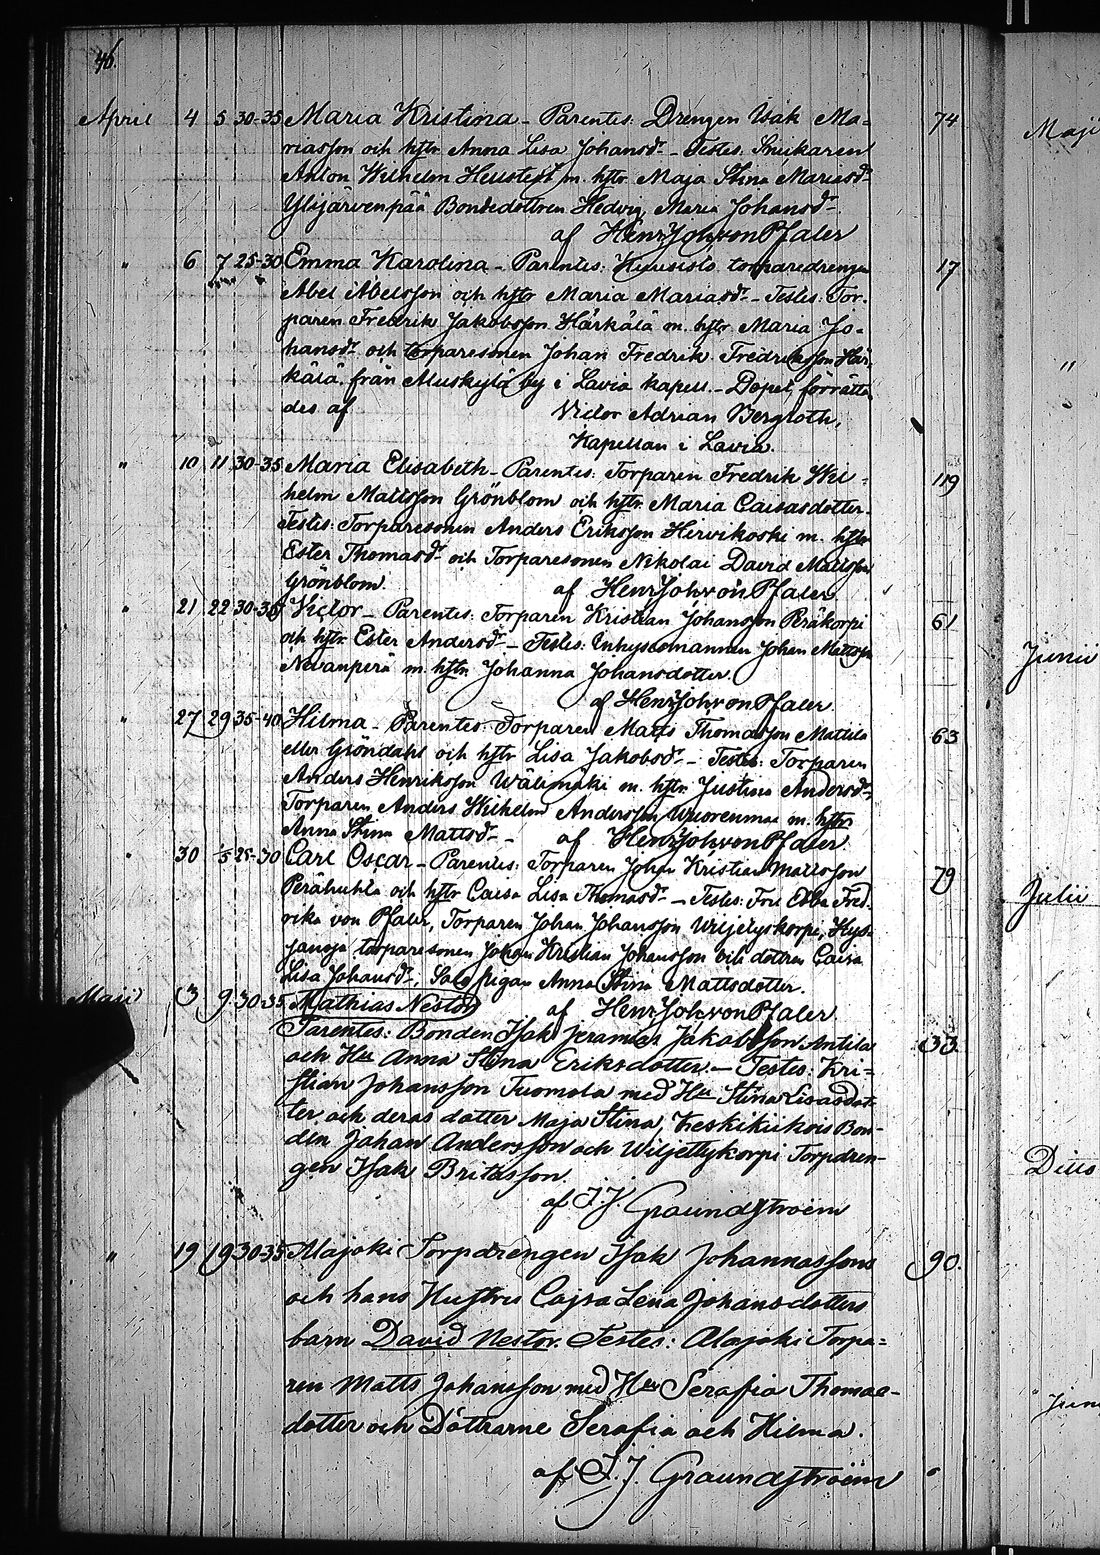 46.
April 4 5 30-35 Maria Kristina - Parentes: Drengen Isak Ma= 74
riasson och hstr Anna Lisa Johansdr - Testes: Snickaren
Anton Wilhelm Hellstedt m. hstr Maja Stina Mariasdr
Ylijärvenpää Bondedottren Hedvig Maria Johansdr.
af Henr Joh von Pfaler
" 6 7 25-30 Emma Karolina - Parentes: torparedrengen 17
Abel Abelsson och hstr Maria Mariasdr - Testes: Tor-
paren Fredrik Jakobsson Härkälä m. hstr Maria Jo-
hansdr och torparesonen Johan Fredrik Fredriksson Här-
kälä, från Muskylä by i Lavia kapell. - Dopet förrätta-
des af Victor Adrian Bergroth,
Kapellan i Lavia.
" 10 11 30-35 Maria Elisabeth - Parentes: Torparen Fredrik Wil= 119
helm Mattsson Grönblom och hstr Maria Caisasdotter.
Testes: Torparesonen Anders Eriksson Hirvikoski m. hstr
Ester Thomasdr och Torparesonen Nikolai David Mattsson
Grönblom. af Henr Joh von Pfaler.
" 21 22 30-35 Victor - Parentes: Torparen Kristian Johansson Peräkorpi 61
och hstr Ester Andersdr - Testes: Inhysesmannen Johan Mattsson
Nevanperä m. hstr Johanna Johansdotter.
af Henr Joh von Pfaler.
" 27 29 35-40 Hilma - Parentes: Torparen Matts Thomasson Mattila 63
eller Gröndahl och hstr Lisa Jakobsdr - Testes: Torparen
Anders Henriksson Wälimäki m. hstr Justina Andersdr,
Torparen Anders Wilhelm Andersson Wuorenmaa m. hstr
Anna Stina Mattsdr - af Henr Joh von Pfaler.
" 30 1/5 25-30 Carl Oscar - Parentes: Torparen Johan Kristian Mattsson 79
Perähuhta och hstr Caisa Lisa Thomasdr - Testes: Fru Ebba Fred-
rika von Pfaler, Torparen Johan Johansson Wiljetyskorpi,
torparesonen Johan Kristian Johansson och dottren Caisa
Lisa Johansdr, Salo pigan Anna Stina Mattsdotter.
Maji 3 9 30-35 Mathias Nestor af Henr Joh von Pfaler.
Parentes: Bonden Isak Jeremias Jakobsson Antila 33
och Hu Anna Stina Eriksdotter. - Testes: Kri=
stian Johansson Tuomola med Hu Stina Lisasdot-
ter och deras dotter Maja Stina, Keskikukois Bon-
den Johan Andersson och Wiljettykorpi Torpdren-
gen Isak Britasson.
af J. J. Graundstroëm
" 19 19 30-35 Alajoki Torpdrengen Isak Johannassons 90.
och hans Hustrus Cajsa Lena Johansdotters
barn David Nestor. Testes: Alajoki Torpa=
ren Matts Johansson med Hu Serafia Thomas-
dotter och Döttrarne Serafia och Hilma.
af J. J. Graundstroëm
Maji
"
Junii
Julii
Dito
" Juni